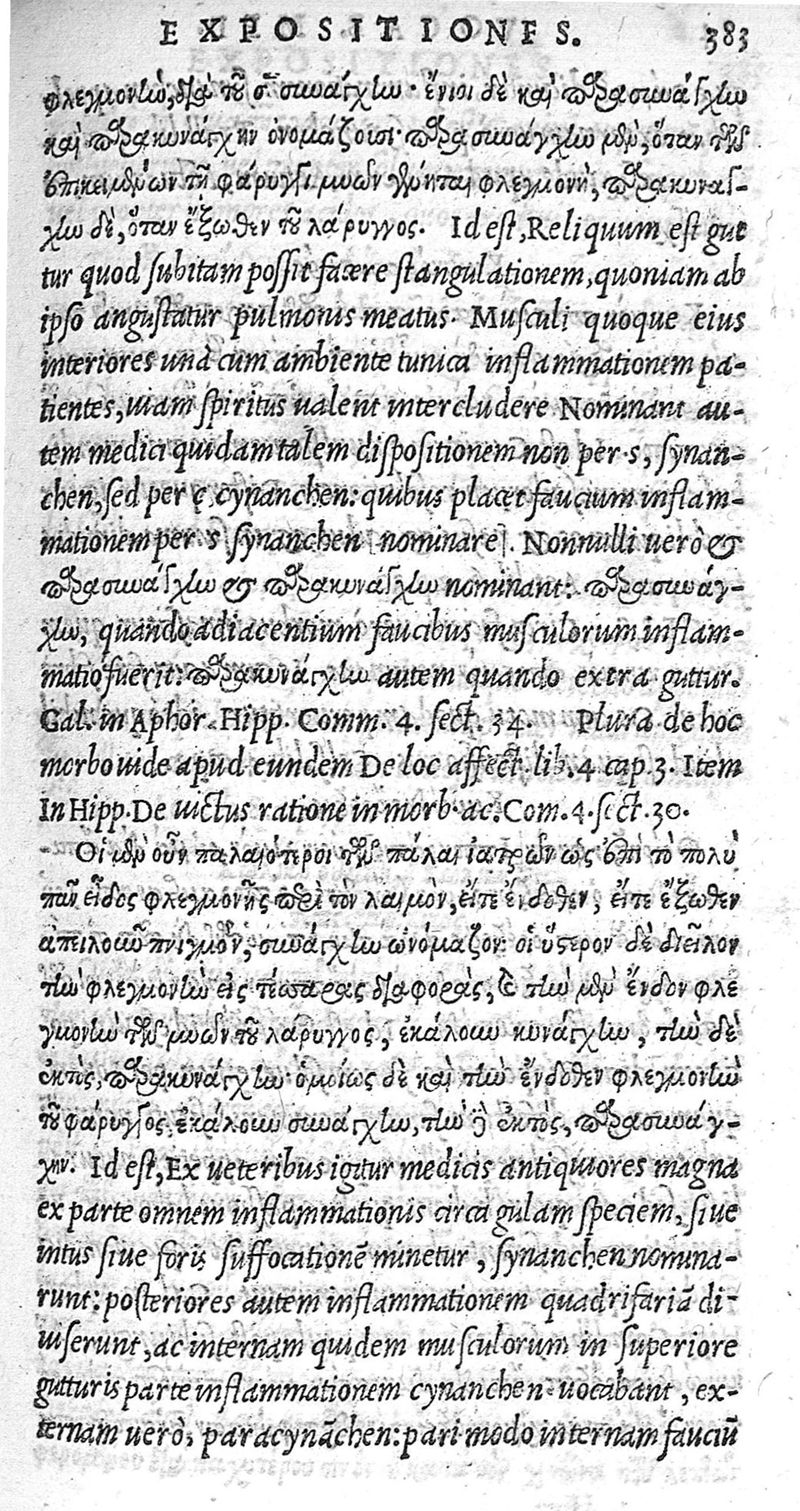 EXPOSITIONES. 383
φλεγμονὴν, διὰ τοῦ σ συνάγχην· ἔνιοι δὲ καὶ παρασυνάγχην
καὶ παρακυνάγχην ὀνομάζουσι· παρασυνάγχην μὲν, ὅταν τῶν
ἐπικειμένων τῇ φάρυγγι μυῶν γένηται φλεγμονὴ, παρακυνάγ-
χην δὲ, ὅταν ἔξωθεν τοῦ λάρυγγος. Id est, Reliquum est gut
tur quod subitam possit facere stangulationem, quoniam ab
ipso angustatur pulmonis meatus. Musculi quoque eius
interiores unà cum ambiente tunica inflammationem pa-
tientes, uiam spiritus ualent intercludere. Nominant au-
tem medici quidam talem dispositionem non per s, synan-
chen, sed per c cynanchen: quibus placet faucium inflam-
mationem per s synanchen [nominare]. Nonnulli uerò &
παρασυνάγχην & παρακυνάγχην nominant: παρασυνάγ-
χην, quando adiacentium faucibus musculorum inflam-
matio fuerit: παρακυνάγχην autem quando extra guttur.
Gal. in Aphor. Hipp. Comm. 4. sect. 34. Plura de hoc
morbo uide apud eundem De loc affect. lib. 4 cap. 3. Item
In Hipp. De uictus ratione in morb. ac. Com. 4. sect. 30.
Οἱ μὲν οὖν παλαιότεροι τῶν πάλαι ἰατρῶν ὡς ἐπὶ τὸ πολὺ
πᾶν εἶδος φλεγμονῆς περὶ τὸν λαιμὸν, εἴτε ἔνδοθεν, εἴτε ἔξωθεν
ἀπειλοῦν πνιγμὸν, συνάγχην ὠνόμαζον· οἱ ὕστερον δὲ διεῖλον
τὴν φλεγμονὴν εἰς τέσσαρας διαφορὰς, & τὴν μὲν ἔνδον φλε
γμονὴν τῶν μυῶν τοῦ λάρυγγος, ἐκάλουν κυνάγχην, τὴν δὲ
ἐκτὸς, παρακυνάγχην· ὁμοίως δὲ καὶ τὴν ἔνδοθεν φλεγμονὴν
τοῦ φάρυγγος ἐκάλουν συνάγχην, τὴν δὲ ἐκτὸς, παρασυνάγ-
χην. Id est, Ex ueteribus igitur medicis antiquiores magna
ex parte omnem inflammationis circa gulam speciem, siue
intus siue foris suffocationẽ minetur, synanchen nomina-
runt: posteriores autem inflammationem quadrifariã di-
uiserunt, ac internam quidem musculorum in superiore
gutturis parte inflammationem cynanchen uocabant, ex-
ternam uerò, paracynãchen: pari modo internam fauciũ